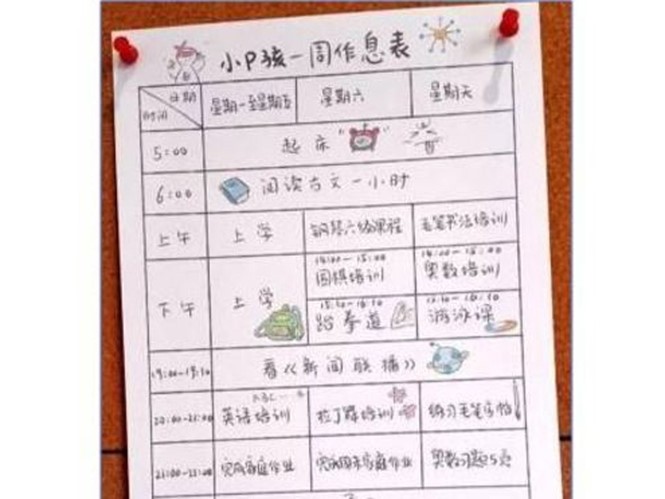 小P孩一周作息表
日期
时间
星期一至星期五 星期六 星期天
5:00 起床
6:00 阅读古文一小时
上午 上学 钢琴六级课程 毛笔书法培训
14:00-15:00 14:00-15:00
围棋培训 奥数培训
下午 上学
15:10-16:10 15:10-16:10
跆拳道 游泳课
19:00-19:30 看《新闻联播》
ABC...
20:00-21:00 英语培训 拉丁舞培训 练习毛笔字帖
21:00-22:00 完成家庭作业 完成周末家庭作业 奥数习题5页